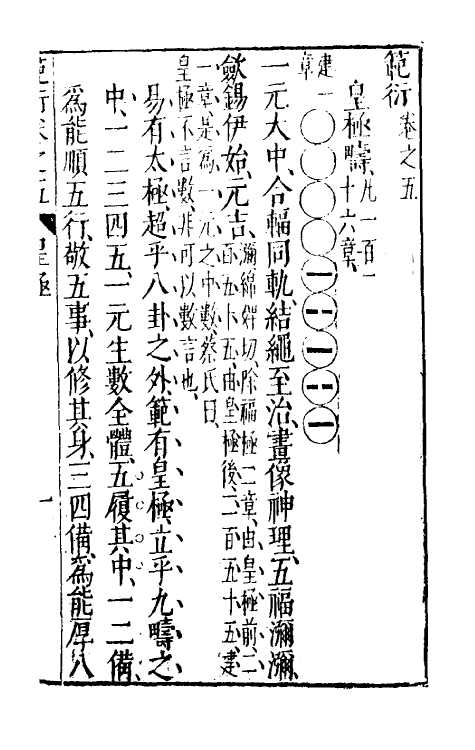 範衍卷之五
皇極疇凡一百一
十六章
建一
章
一元大中合輻同軌結繩至治畫像神理五福瀰瀰
斂錫伊始元吉瀰綿婢切除福極二章由皇極前二
百五十五由皇極後二百五十五建
一章是為一元之中數蔡氏曰
皇極不言數非可以數言也
易有太極超乎八卦之外範有皇極立乎九疇之
中一二三四五一元生數全體五履其中一二備
為能順五行敬五事以修其身三四備為能厚八
範衍卷之五
皇極
一